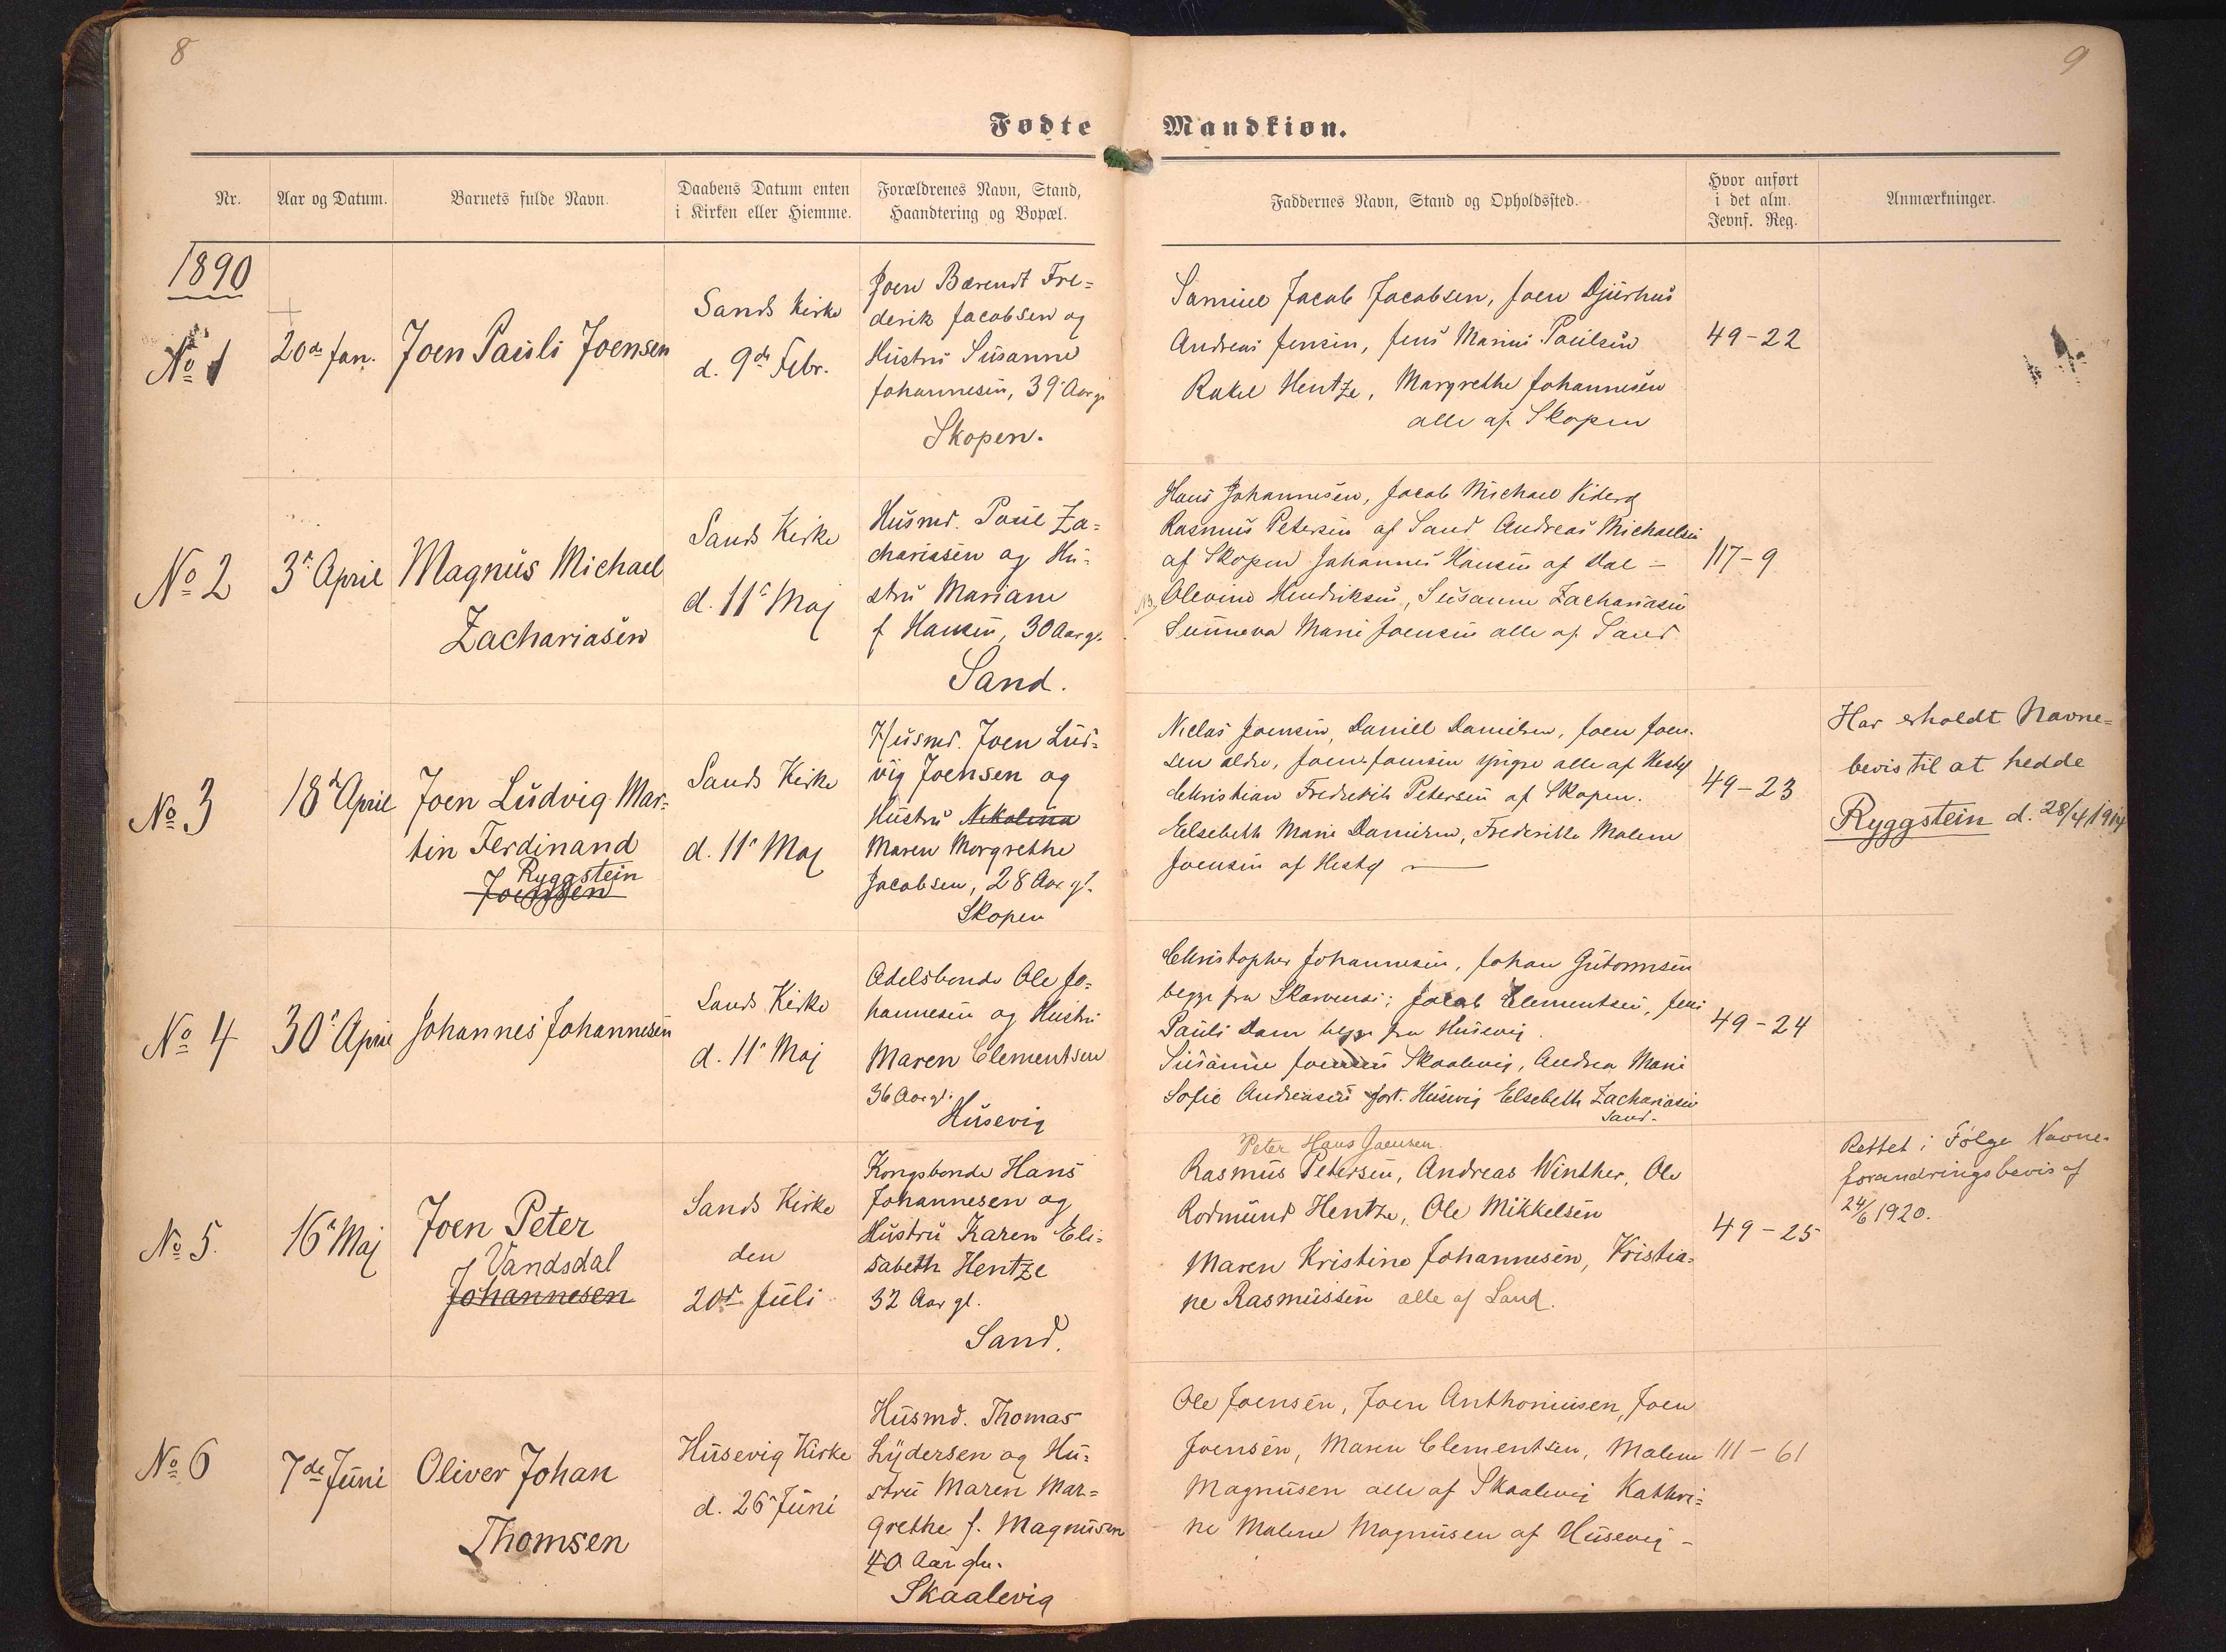 8
9
Fødte
Mandkiøn.
Nr.
Aar og Datum.
Barnets fulde Navn.
Daabens Datum enten
i Kirken eller Hiemme.
Forældrenes Navn, Stand,
Haandtering og Bopæl.
Faddernes Navn, Stand og Opholdssted.
Hvor anført
i det alm.
Jevnf. Reg.
Anmærkninger.
1890
No 1
20de Jan.
Joen Pauli Joensen
Sands Kirke
d. 9de Febr.
Joen Bærendt Fre=
derik Jacobsen og
Hustru Susanne
Johannesen, 39 Aar gl
Skopen.
Samuel Jacob Jacobsen, Joen Djurhus
Andreas Jensen, Jens Marius Poulsen
Rakel Hentze, Margrethe Johannesen
alle af Skopen
49-22
No 2
3die April
Magnus Michael
Zachariasen
Sands Kirke
d. 11te Maj
Husmd. Poul Za=
chariasen og Hu=
stru Mariane
f Hansen, 30 Aar gl.
Sand.
Hans Johannesen, Jacob Michael Viderø
Rasmus Petersen af Sand Andreas Michaelsen
af Skopen Johannes Hansen af Dal -
Olevine Hendriksen, Susanne Zachariasen
Sunneva Marie Joensen alle af Sand
117-9
No 3
18de April
Joen Ludvig Mar=
tin Ferdinand
Ryggstein
Joensen
Sands Kirke
d. 11te Maj
Husmd. Joen Lud=
vig Joensen og
Hustru Nikolina
Maren Margrethe
Jacobsen, 28 Aar gl.
Skopen
Niclas Joensen, Daniel Danielsen, Joen Joen=
sen ældre, Joen Joensen yngre alle af Hestø
Christian Frederik Petersen af Skopen.
Elsebeth Marie Danielsen, Frederikke Malene
Joensen af Hestø
49-23
Har erholdt Navne=
bevis til at hedde
Ryggstein d. 28/4 1914
No 4
30te April
Johannes Johannesen
Sands Kirke
d. 11te Maj
Odelsbonde Ole Jo=
hannesen og Hustru
Maren Clementsen
36 Aar gl.
Husevig
Christopher Johannesen, Johan Guttormsen
begge fra Skarvenes; Jacob Clementsen, Jens
Pauli Dam begge fra Husevig
Susanne Joensen Skaalevig, Andrea Marie
Sofie Andreasen fort. Husevig Elsebeth Zachariasen
Sand.
49-24
No 5.
16de Maj
Joen Peter
Vandsdal
Johannesen
Sands Kirke
den
20de Juli
Kongsbonde Hans
Johannesen og
Hustru Karen Eli=
sabeth Hentze
32 Aar gl.
Sand.
Peter Hans Joensen
Rasmus Petersen, Andreas Winther, Ole
Rodmund Hentze, Ole Mikkelsen
Maren Kristine Johannesen, Kristia=
ne Rasmussen alle af Sand.
49-25
Rettet i Følge Navne=
forandringsbevis af
24/6 1920.
No 6
7de Juni
Oliver Johan
Thomsen
Husevig Kirke
d. 26de Juni
Husmd. Thomas
Lydersen og Hu=
stru Maren Mar=
grethe f. Magnusen
40 Aar gl.
Skaalevig
Ole Joensen, Joen Anthoniusen, Joen
Joensen, Maren Clementsen, Malene
Magnusen alle af Skaalevig Kathri=
ne Malene Magnusen af Husevig -
111-61